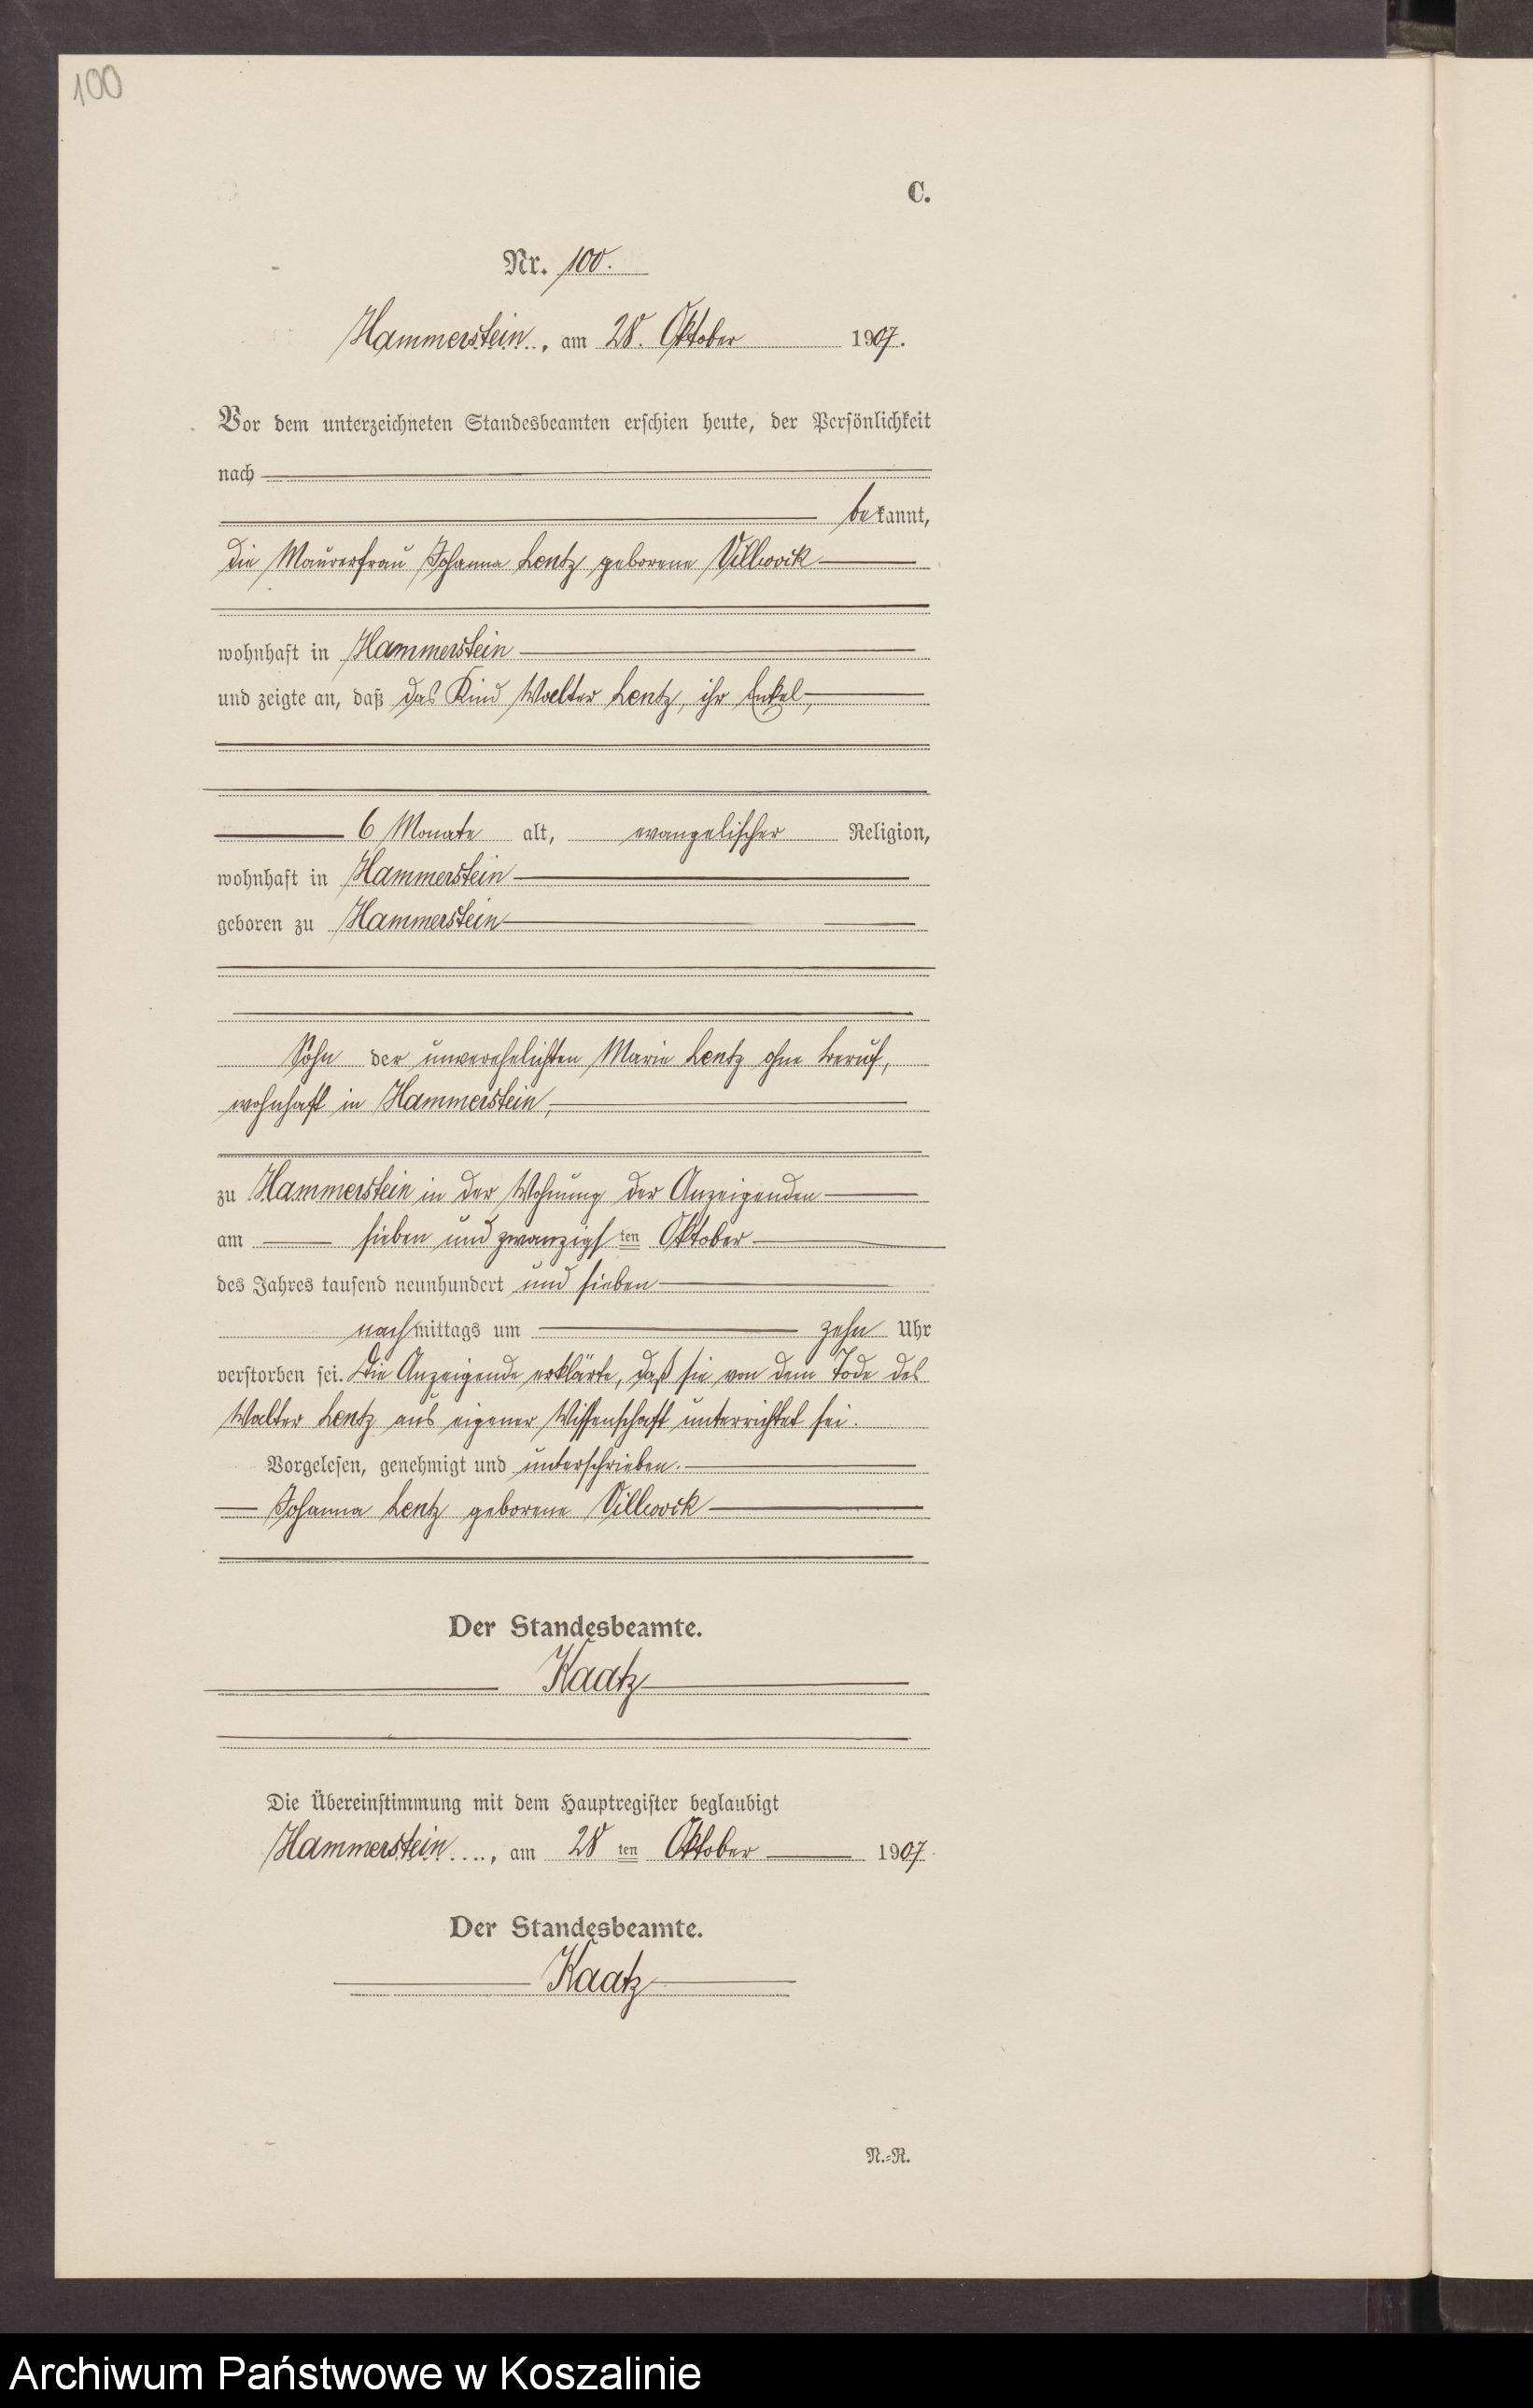 100
C.
Nr. 100.
Hammerstein, am 28. Oktober 1907.
Vor dem unterzeichneten Standesbeamten erschien heute, der Persönlichkeit
nach
bekannt,
die Maurerfrau Johanna Lentz geborene Villwock
wohnhaft in Hammerstein
und zeigte an, daß das Kind Walter Lentz, ihr Enkel,
6 Monate alt, evangelischer Religion,
wohnhaft in Hammerstein
geboren zu Hammerstein
Sohn der unverehelichten Marie Lentz ohne Beruf,
wohnhaft in Hammerstein,
zu Hammerstein in der Wohnung der Anzeigenden
am sieben und zwanzigsten Oktober
des Jahres tausend neunhundert und sieben
nachmittags um zehn Uhr
verstorben sei. Die Anzeigende erklärte, daß sie von dem Tode des
Walter Lentz aus eigener Wissenschaft unterrichtet sei.
Vorgelesen, genehmigt und unterschrieben.
Johanna Lentz geborene Villwock
Der Standesbeamte.
Kaatz
Die Übereinstimmung mit dem Hauptregister beglaubigt
Hammerstein...., am 28ten Oktober 1907
Der Standesbeamte.
Kaatz
N.-R.
Archiwum Państwowe w Koszalinie